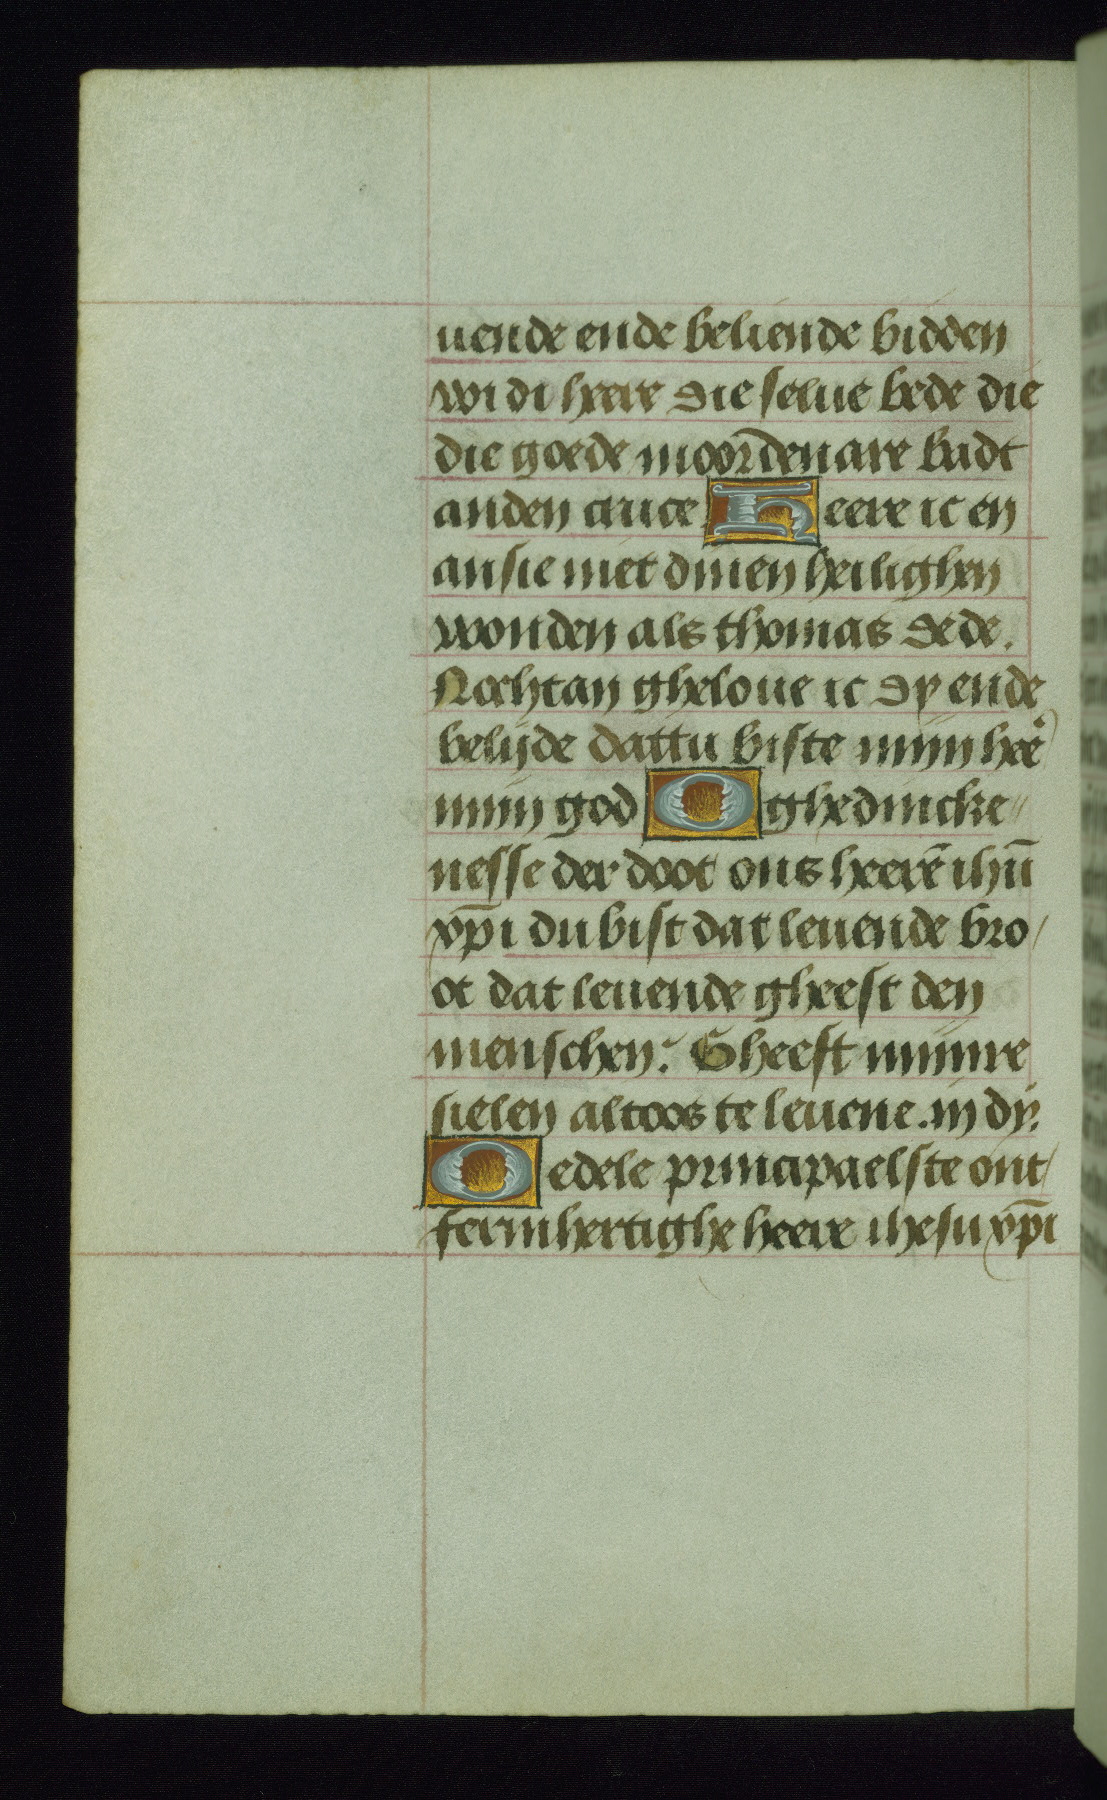 uende ende beliende bidden
wi di heere die selue bede die
die goede moordenare badt
anden cruce Heere ic en
ansie niet dinen heilighen
wonden als thomas dede.
Nochtan gheloue ic dy ende
belijde dattu biste mijn heē
mijn god O ghedincke
nesse der doot ons heerē ihū
xp̄i du bist dat leuende bro
ot dat leuende gheest den
menschen. Gheeft mijnre
sielen altoos te leuene. in dy.
O edele principaelste ont
fermhertighe heere ihesu xp̄i